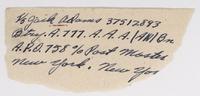 ℅ Jack Adams 37512893
Btry. A. 777. A.A.A. (AW) Bn
A.P.O. 758 ℅ Post Master
New York. New Yor